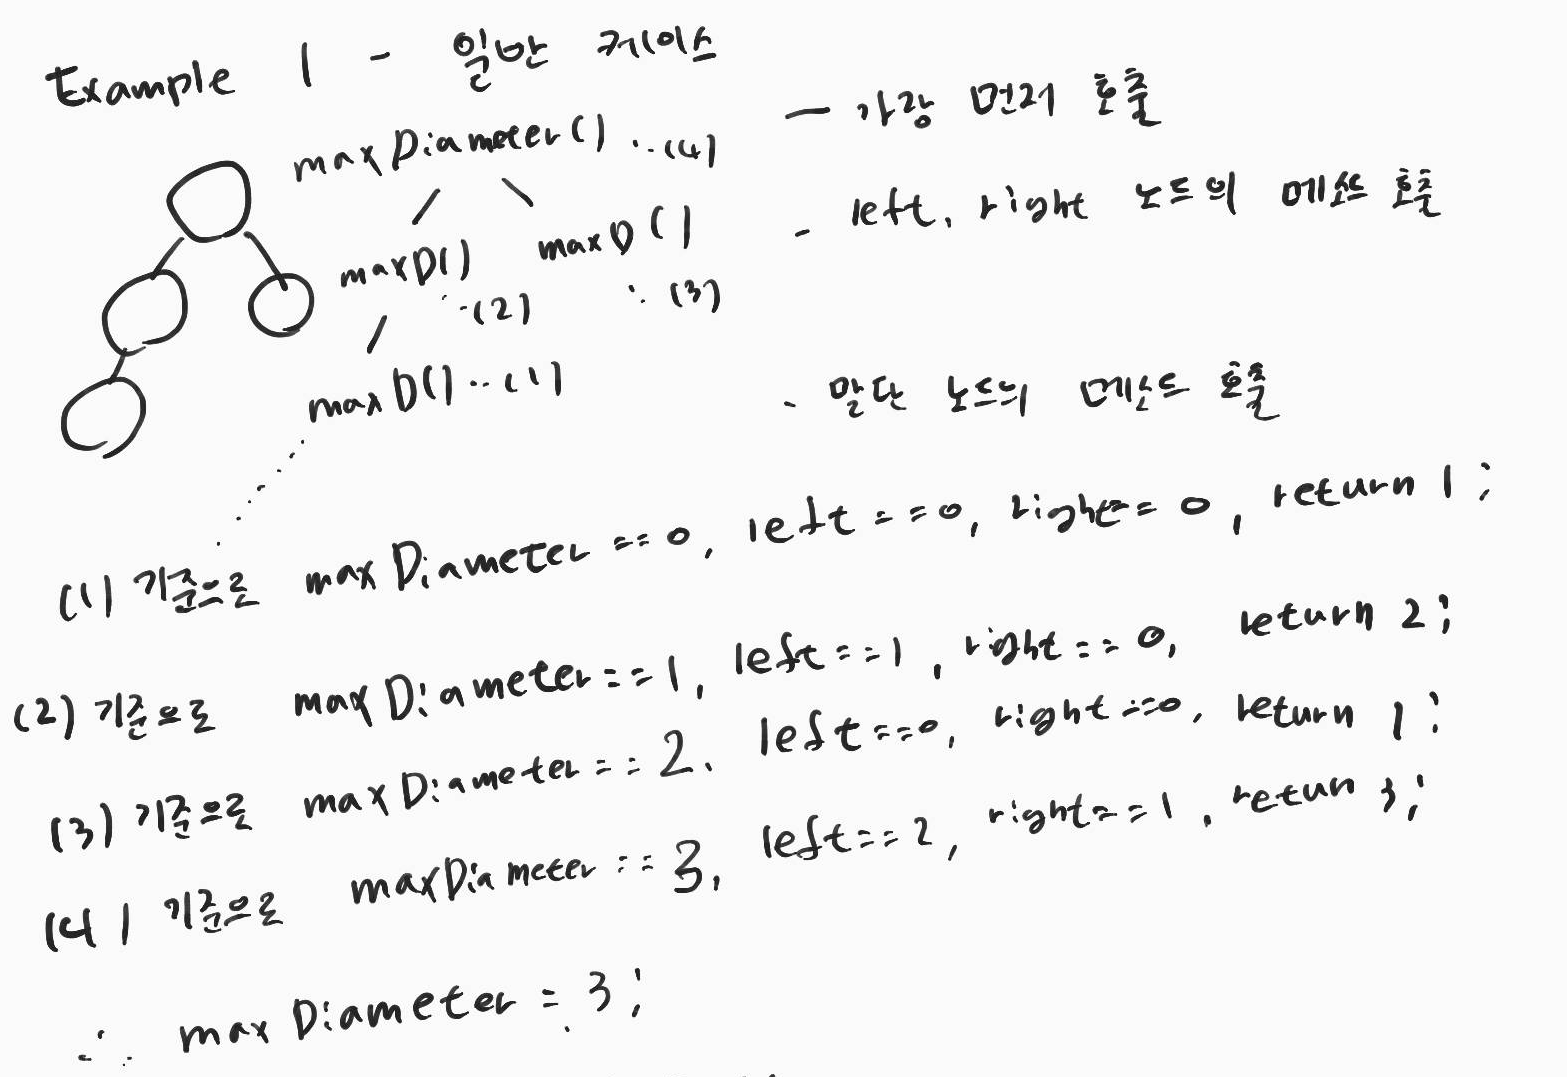 Example 1 - 일반 케이스
maxDiameter() ...(4) - 가장 먼저 호출
maxD() ...(2) maxD() ...(3) - left, right 노드의 메소드 호출
maxD() ...(1) - 말단 노드의 메소드 호출
(1) 기준으로 maxDiameter == 0, left == 0, right == 0, return 1;
(2) 기준으로 maxDiameter == 1, left == 1, right == 0, return 2;
(3) 기준으로 maxDiameter == 2, left == 0, right == 0, return 1;
(4) 기준으로 maxDiameter == 3, left == 2, right == 1, return 3;
∴ maxDiameter = 3;